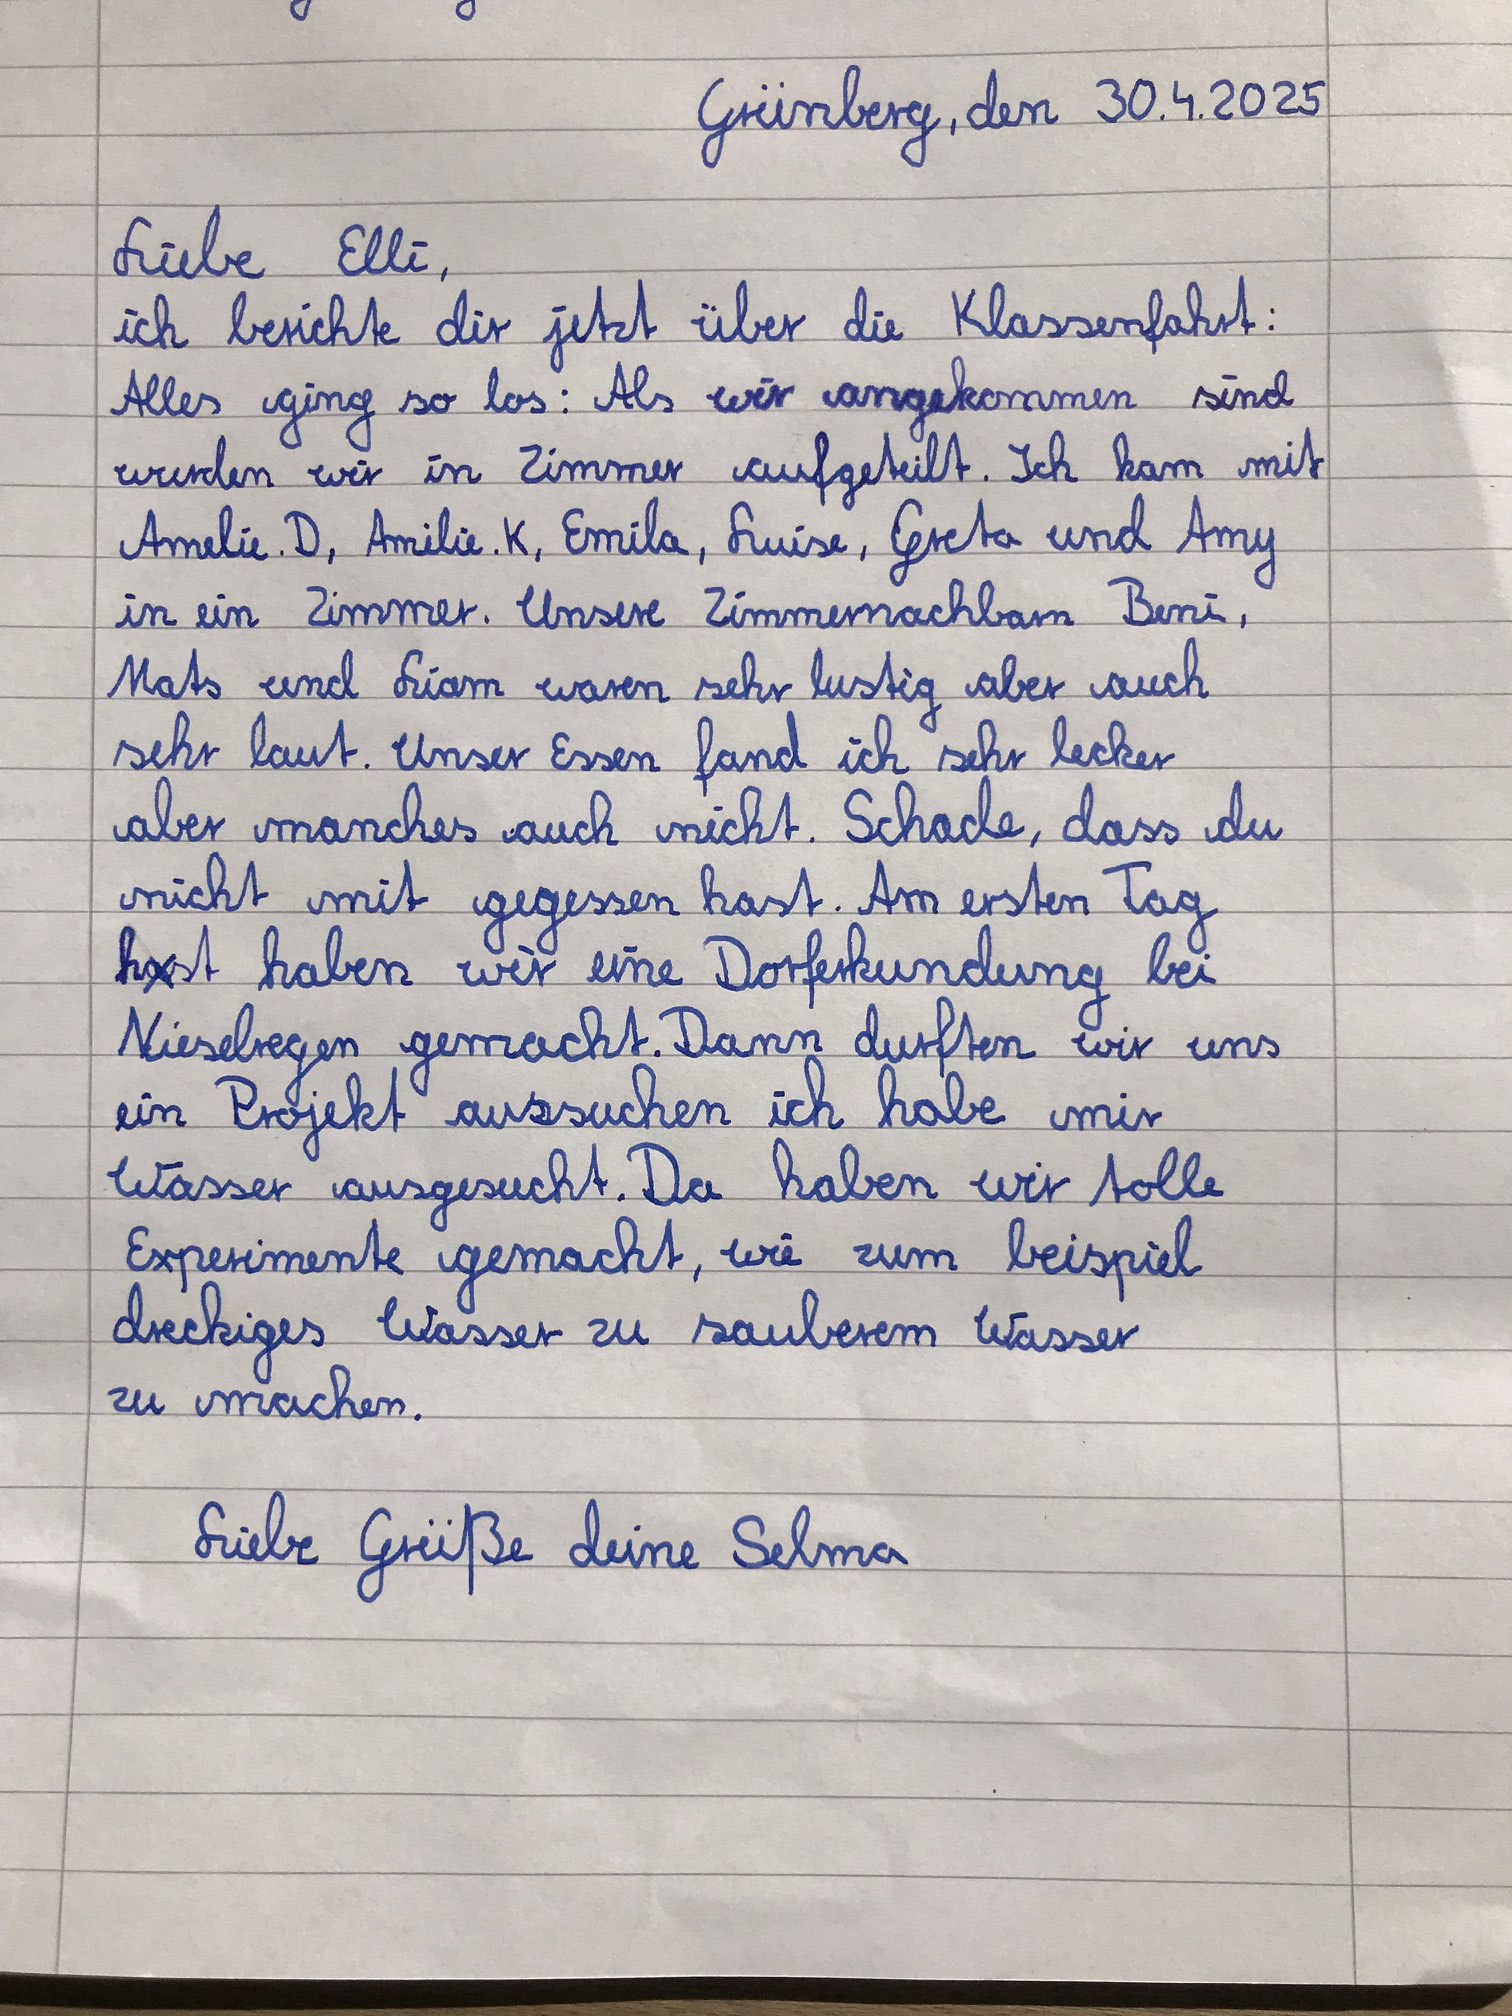 Grünberg, den 30.4.2025
Liebe Elli,
ich berichte dir jetzt über die Klassenfahrt:
Alles ging so los: Als wir angekommen sind
wurden wir in Zimmer aufgeteilt. Ich kam mit
Amelie.D, Amilie.K, Emila, Luise, Greta und Amy
in ein Zimmer. Unsere Zimmernachbarn Beni,
Mats und Liam waren sehr lustig aber auch
sehr laut. Unser Essen fand ich sehr lecker
aber manches auch nicht. Schade, dass du
nicht mit gegessen hast. Am ersten Tag
haben wir eine Dorferkundung bei
Nieselregen gemacht. Dann durften wir uns
ein Projekt aussuchen ich habe mir
Wasser ausgesucht. Da haben wir tolle
Experimente gemacht, wie zum beispiel
dreckiges Wasser zu sauberem Wasser
zu machen.
Liebe Grüße deine Selma